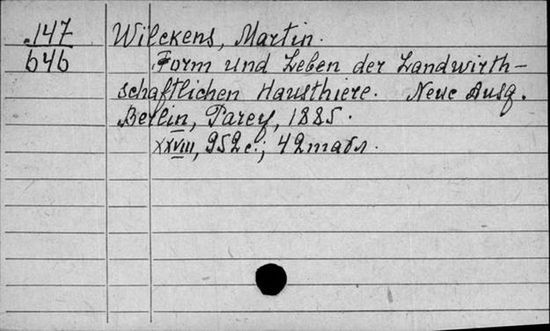 147 Wilckens, Martin.
646 Form und Leben der Landwirth-
schaftlichen Hausthiere. Neue Ausg.
Berlin, Parey, 1885.
XXVIII, 952 с.; 42 табл.